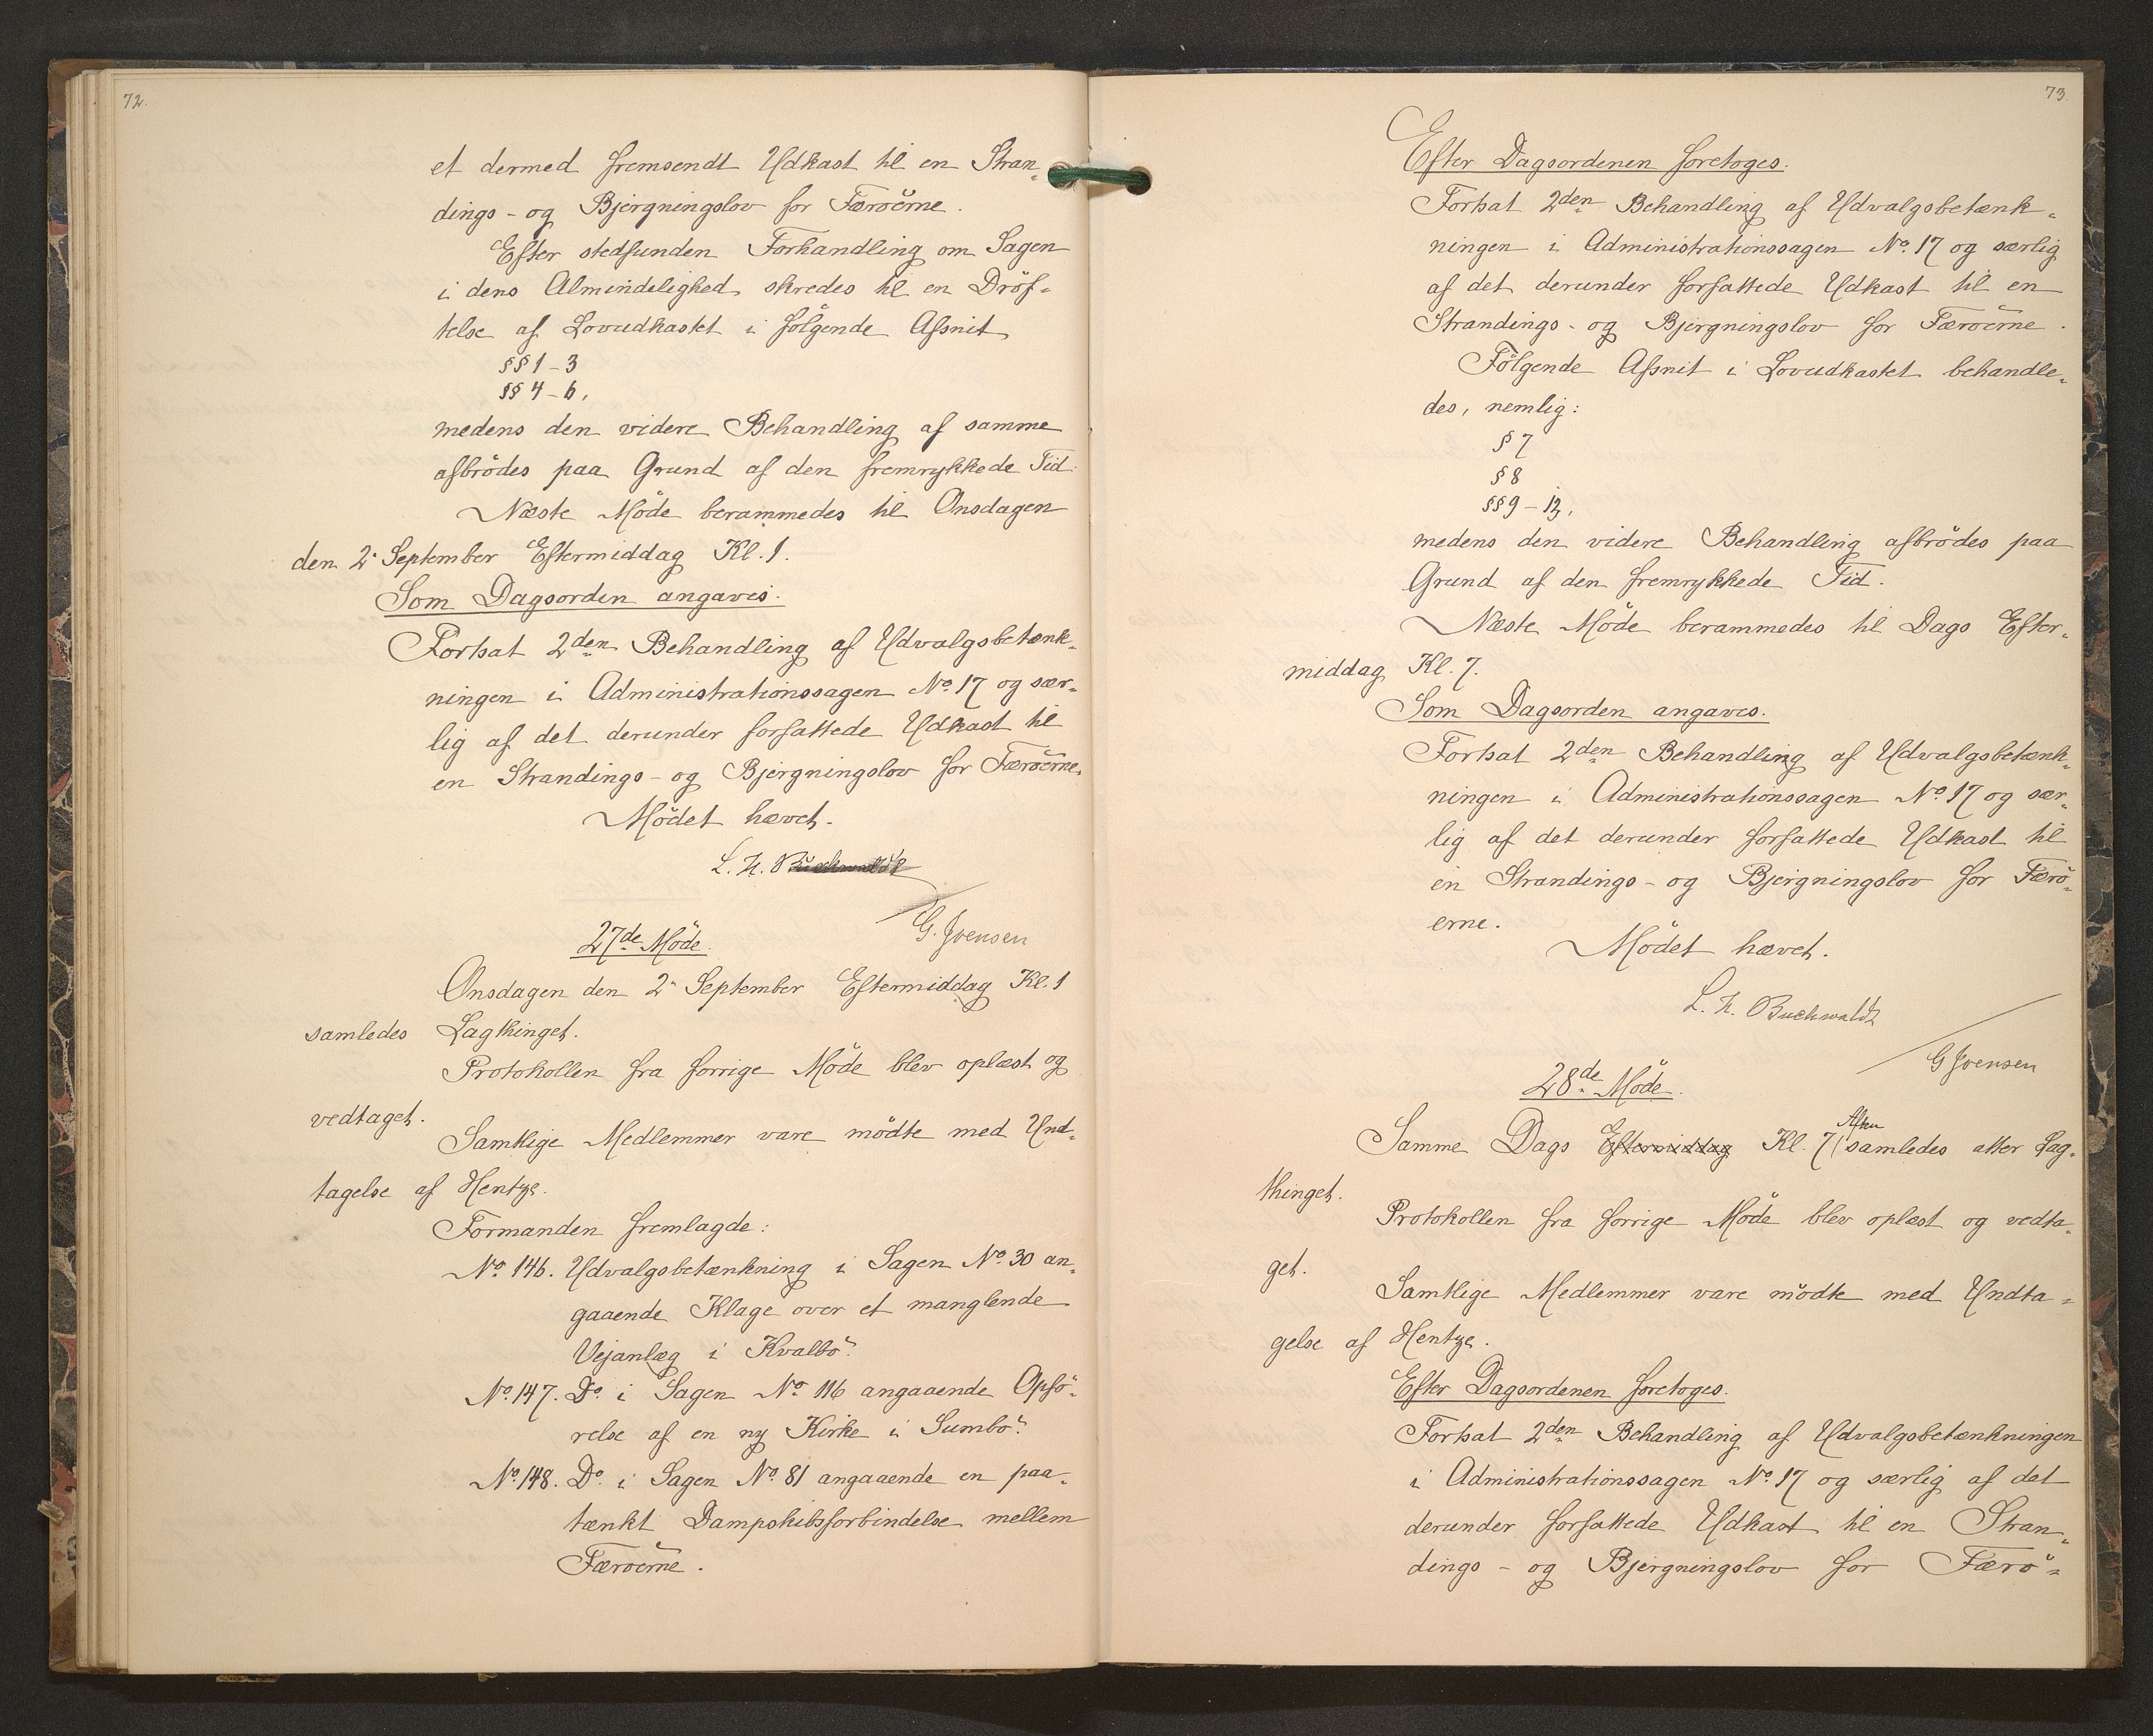 72.
et dermed fremsendt Udkast til en Stran-
dings- og Bjergningslov for Færöerne.
Efter stedfunden Forhandling om Sagen
i dens Almindelighed skredes til en Dröf-
telse af Lovudkastet i følgende Afsnit
§§ 1-3
§§ 4-6,
medens den videre Behandling af samme
afbrödes paa Grund af den fremrykkede Tid.
Næste Möde berammedes til Onsdagen
den 2. September Eftermiddag Kl. 1.
Som Dagsorden angaves:
Fortsat 2den Behandling af Udvalgsbetænk-
ningen i Administrationssagen No. 17 og sær-
lig af det derunder forfattede Udkast til
en Strandings- og Bjergningslov for Færöerne.
Mödet hævet.
L. H. Buchwaldt
G. Joensen
27de Möde.
Onsdagen den 2. September Eftermiddag Kl. 1
samledes Lagthinget.
Protokollen fra forrige Möde blev oplæst og
vedtaget.
Samtlige Medlemmer vare mödte med Und-
tagelse af Hentze.
Formanden fremlagde:
No. 146. Udvalgsbetænkning i Sagen No. 30 an-
gaaende Klage over et manglende
Vejanlæg i Kvalbö.
No. 147. Do. i Sagen No. 116 angaaende Opfö-
relse af en ny Kirke i Sumbö.
No. 148. Do. i Sagen No. 81 angaaende en paa-
tænkt Dampskibsforbindelse mellem
Færöerne.
73.
Efter Dagsordenen foretoges.
Fortsat 2den Behandling af Udvalgsbetænk-
ningen i Administrationssagen No. 17 og særlig
af det derunder forfattede Udkast til en
Strandings- og Bjergningslov for Færöerne.
Fölgende Afsnit i Lovudkastet behandle-
des, nemlig:
§ 7
§ 8
§§ 9-13,
medens den videre Behandling afbrödes paa
Grund af den fremrykkede Tid.
Næste Möde berammedes til Dags Efter-
middag Kl. 7.
Som Dagsorden angaves.
Fortsat 2den Behandling af Udvalgsbetænk-
ningen i Administrationssagen No. 17 og sær-
lig af det derunder forfattede Udkast til
en Strandings- og Bjergningslov for Færö-
erne.
Mödet hævet.
L. H. Buchwaldt
G Joensen
28de Möde.
Samme Dags Eftermiddag Kl. 7 Aften samledes atter Lag-
thinget.
Protokollen fra forrige Möde blev oplæst og vedta-
get.
Samtlige Medlemmer vare mödte med Undta-
gelse af Hentze.
Efter Dagsordenen foretoges.
Fortsat 2den Behandling af Udvalgsbetænkningen
i Administrationssagen No. 17 og særlig af det
derunder forfattede Udkast til en Stran-
dings- og Bjergningslov for Færö-